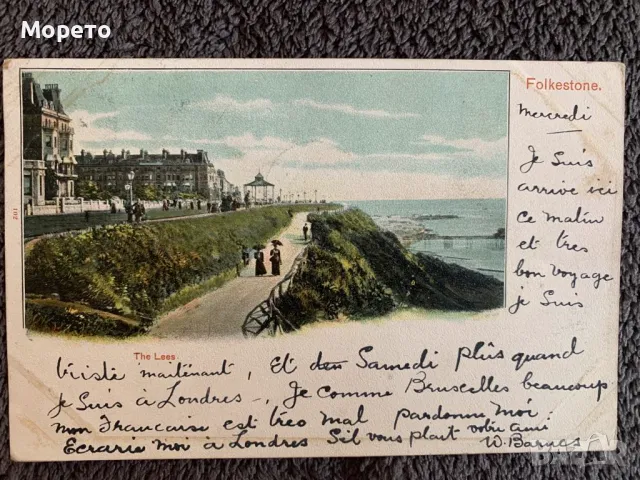 Морето
Folkestone.
Mercredi
Je Suis
arrive ici
ce matin
et tres
bon voyage
je suis
102
The Lees
triste maitenant, Et den Samedi plus quand
je Suis à Londres, Je comme Bruscelles beaucoup
mon Francaise est tres mal pardonne moi.
Ecraris moi à Londres Sil vous plait votre ami
W. Barnas